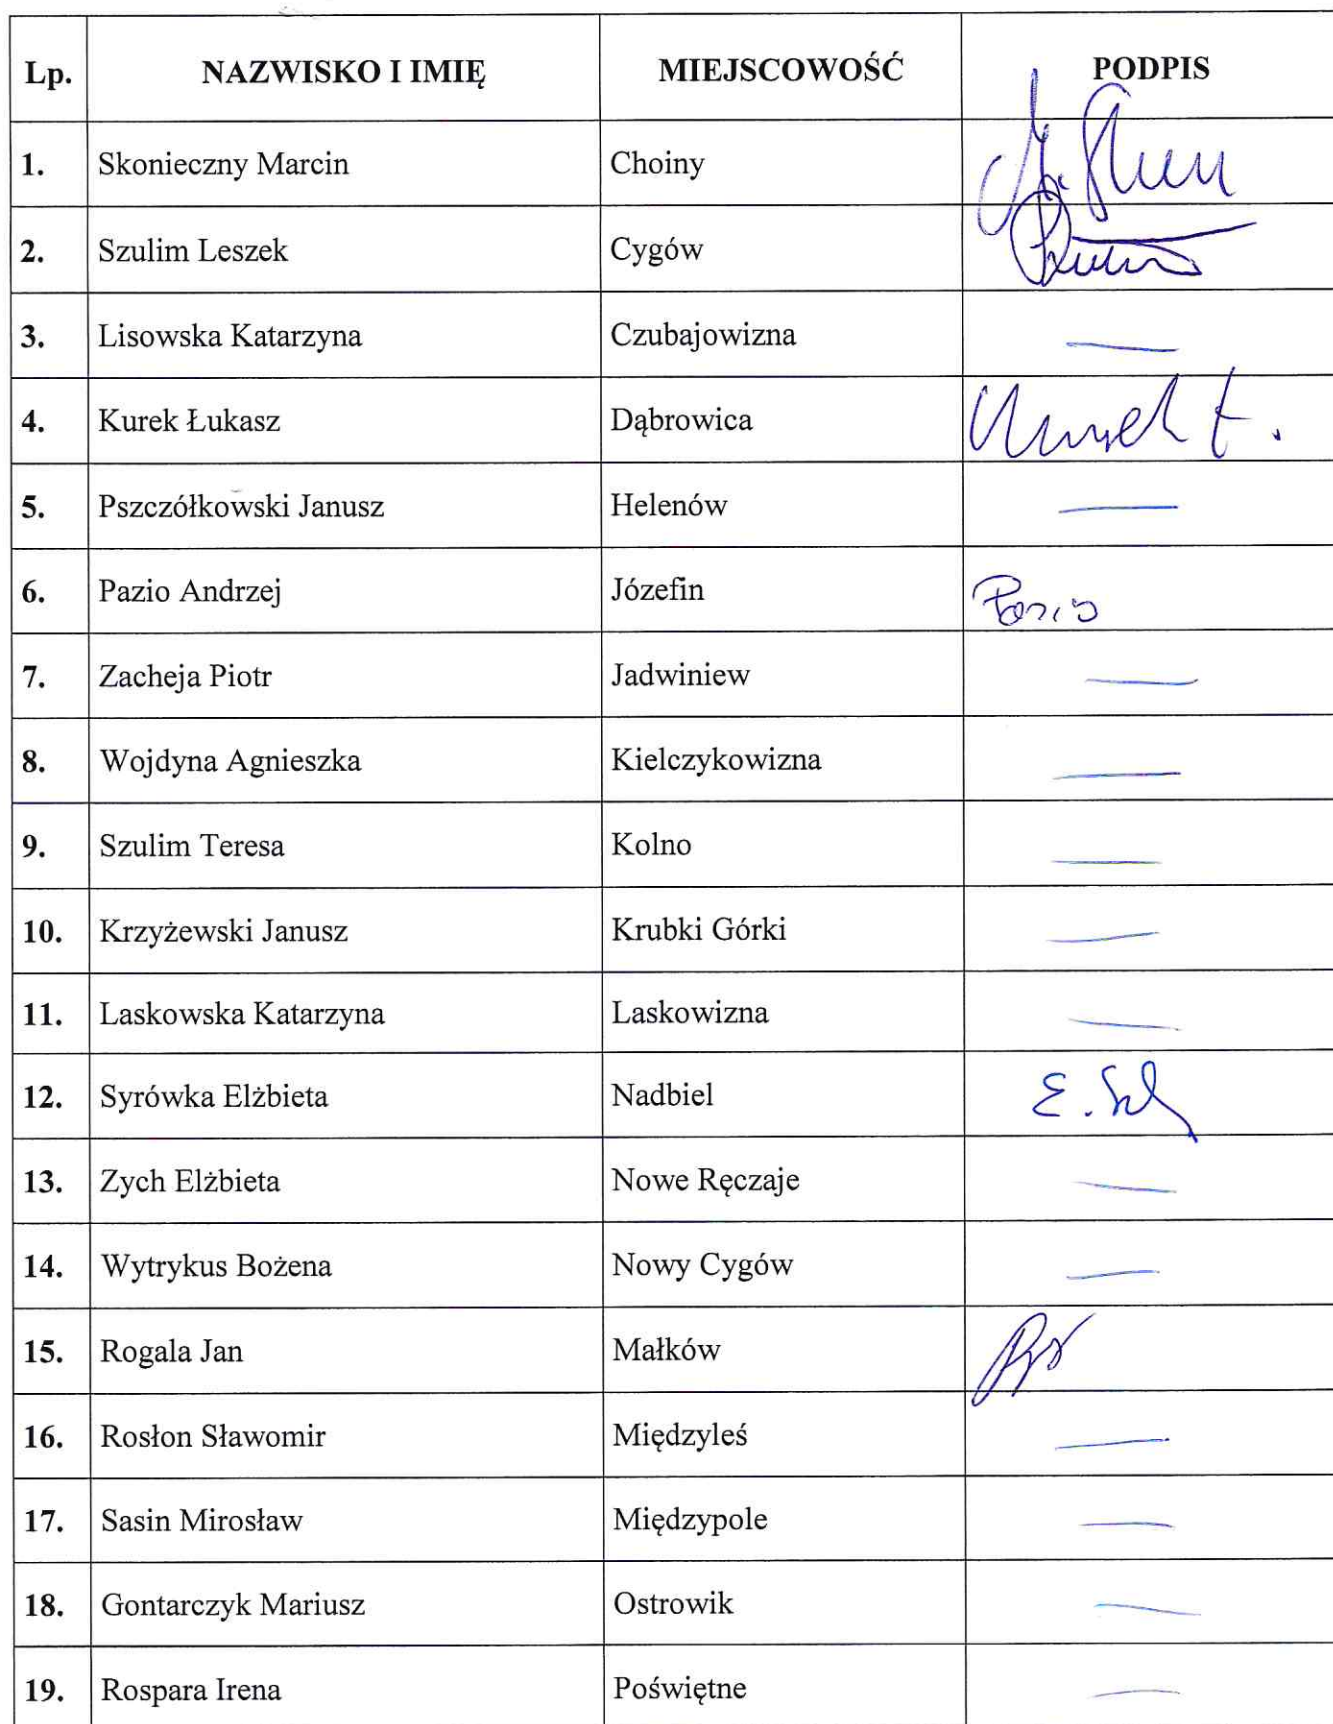 Lp. NAZWISKO I IMIĘ MIEJSCOWOŚĆ PODPIS
1. Skonieczny Marcin Choiny
2. Szulim Leszek Cygów
3. Lisowska Katarzyna Czubajowizna —
4. Kurek Łukasz Dąbrowica
5. Pszczółkowski Janusz Helenów —
6. Pazio Andrzej Józefin Pazio
7. Zacheja Piotr Jadwiniew —
8. Wojdyna Agnieszka Kielczykowizna —
9. Szulim Teresa Kolno —
10. Krzyżewski Janusz Krubki Górki —
11. Laskowska Katarzyna Laskowizna —
12. Syrówka Elżbieta Nadbiel
13. Zych Elżbieta Nowe Ręczaje —
14. Wytrykus Bożena Nowy Cygów —
15. Rogala Jan Małków
16. Rosłon Sławomir Międzyleś —
17. Sasin Mirosław Międzypole —
18. Gontarczyk Mariusz Ostrowik —
19. Rospara Irena Poświętne —